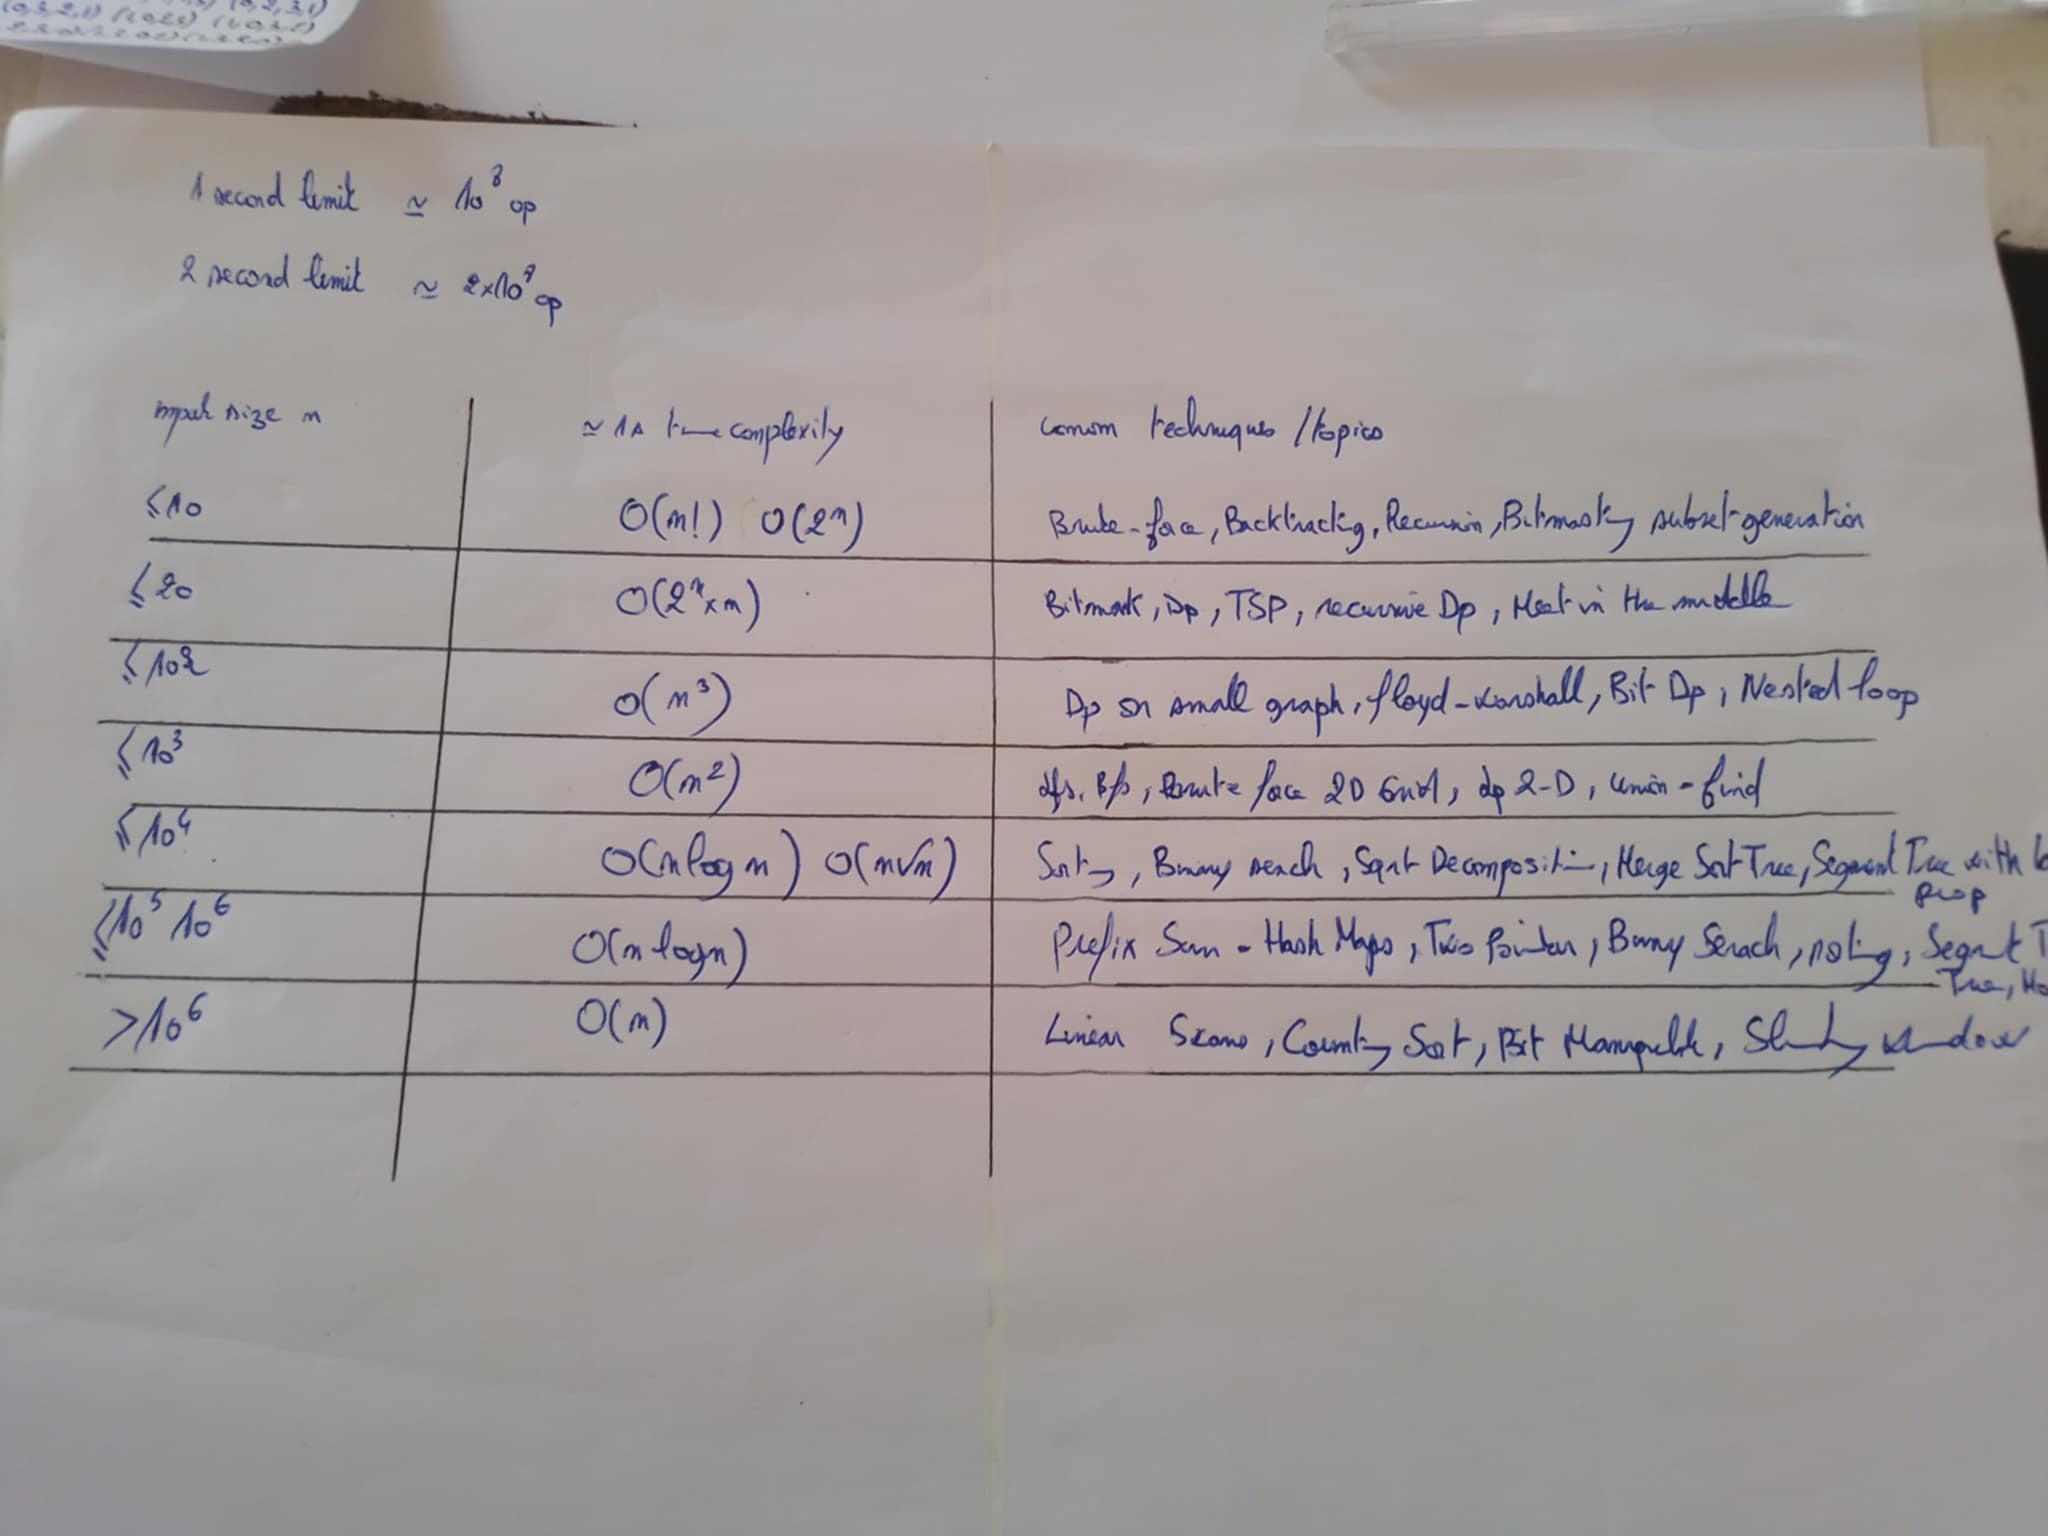 (0,3,2,1)
1 second limit ≃ 10^8 op
2 second limit ≃ 2×10^8 op
input size n ≃ 1s time complexity common techniques / topics
≤10 O(n!) O(2^n) Brute-force, Backtracking, Recursion, Bitmasking subset-generation
≤20 O(2^n×n) Bitmask, Dp, TSP, recursive Dp, Meet in the middle
≤10^2 O(n^3) Dp on small graph, floyd-warshall, Bit Dp, Nested loop
≤10^3 O(n^2) dfs, Bfs, Brute force 2D Grid, dp 2-D, union-find
≤10^4 O(n log n) O(n√n) Sorting, Binary search, Sqrt Decomposition, Merge Sort Tree, Segment Tree with
prop
≤10^5 10^6 O(n log n) Prefix Sum - Hash Maps, Two Pointer, Binary Serach, Segment T
Tree, H
>10^6 O(n) Linear Scans, Counting Sort, Bit Manipulation, Sliding window